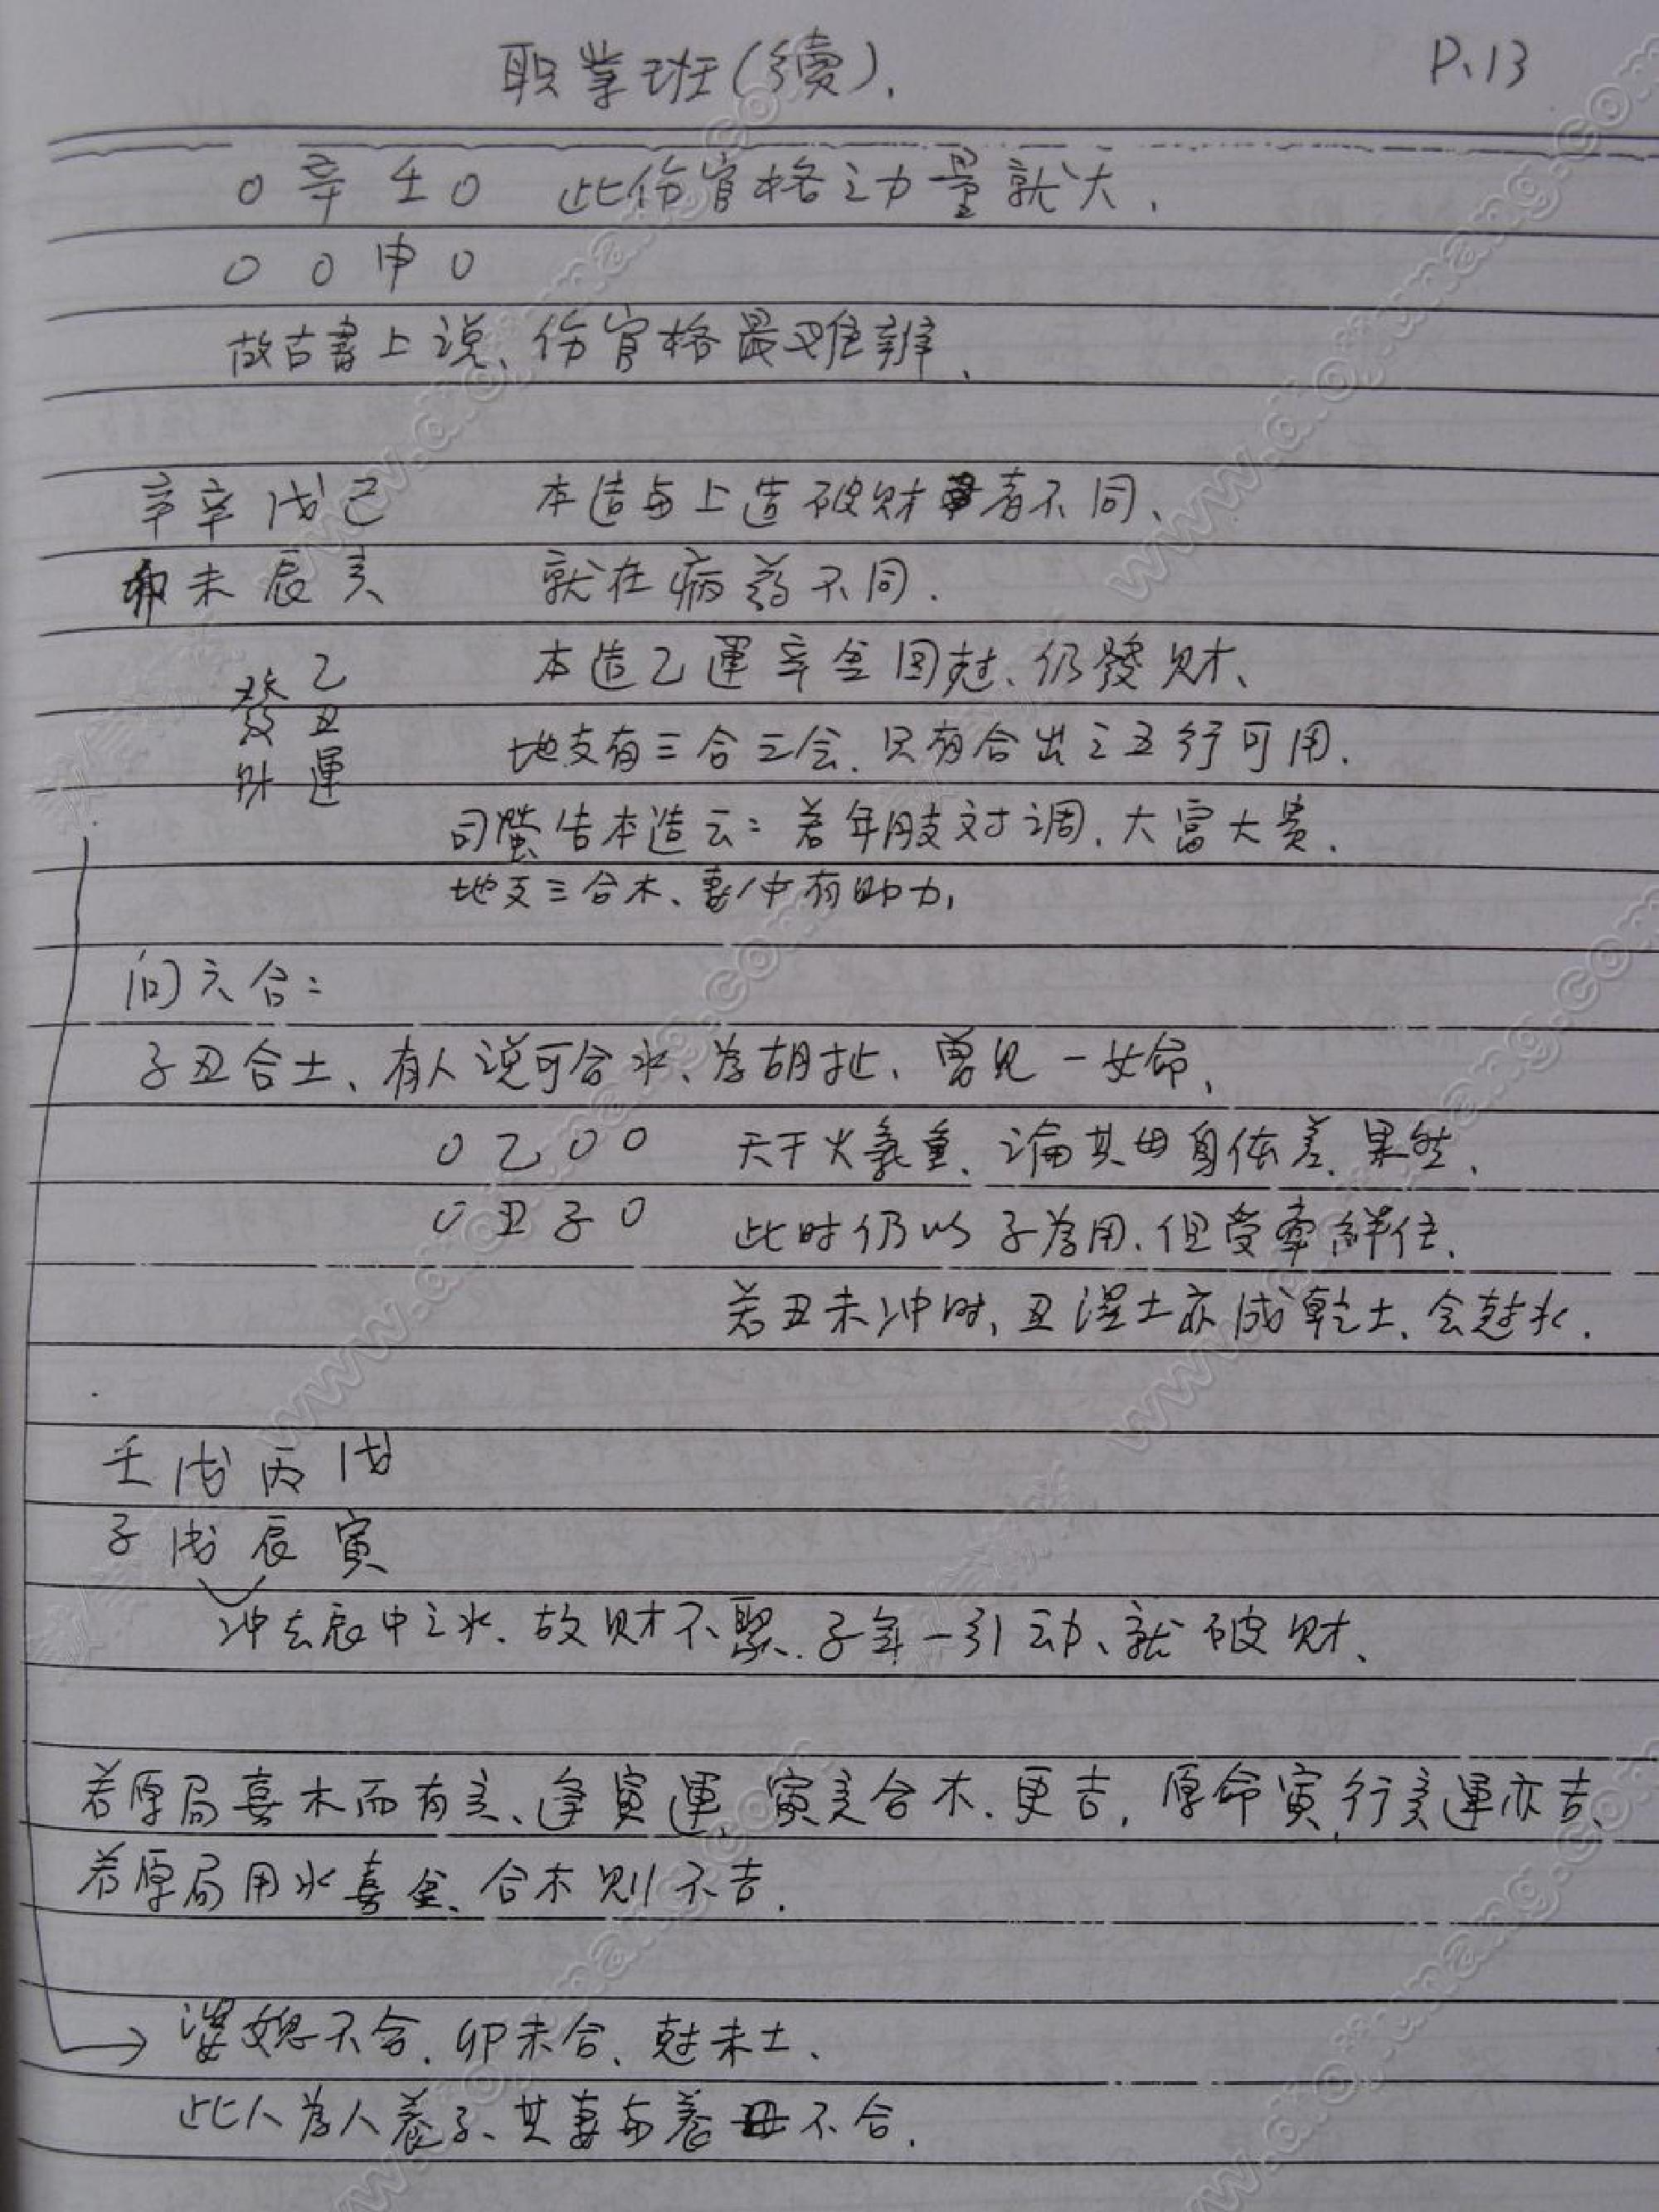 职業班(續).
P.13
0 辛 壬 0 此伤官格之力量就大.
0 0 申 0
故古書上说、伤官格最难辨、
辛辛戊己 本造与上造破财者不同、
卯未辰亥 就在病药不同.
本造乙運辛金回尅、仍發财、
乙丑運
發财
地支有三合三会.只有合出之五行可用.
司螢告本造云:若年時支对调.大富大贵.
地支三合木、喜神有助力,
问六合:
子丑合土、有人说可合水、为胡扯、曾见一女命、
0 乙 0 0 天干火氣重、论其母身体差.果然、
0 丑 子 0 此时仍以子为用、但受牵絆住、
若丑未冲时、丑湿土亦成乾土、会尅水.
壬戊丙戊
子戌辰寅
冲去辰中之水、故财不聚.子年一引动、就破财、
若原局喜木而有亥、逢寅運、寅亥合木.更吉,原命寅,行亥運亦吉、
若原局用水喜金、合木则不吉.
婆媳不合.卯未合、尅未土、
此人为人養子、其妻与養母不合.